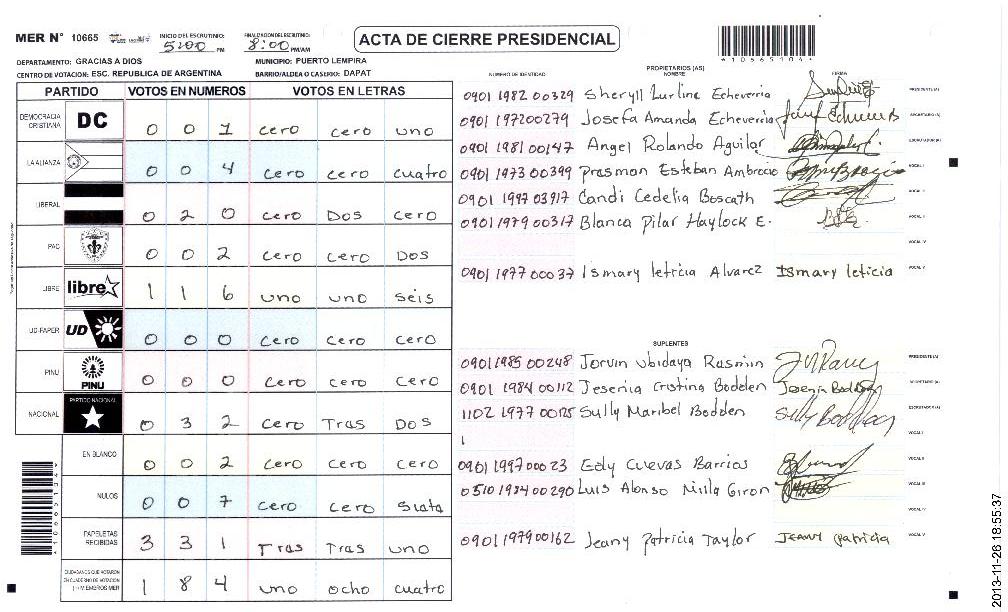 MER N° 10665
INICIO DEL ESCRUTINIO: 5:00 PM
FINALIZACION DEL ESCRUTINIO: 8:00 PM/AM
ACTA DE CIERRE PRESIDENCIAL
DEPARTAMENTO: GRACIAS A DIOS MUNICIPIO: PUERTO LEMPIRA
CENTRO DE VOTACION: ESC. REPUBLICA DE ARGENTINA BARRIO/ALDEA O CASERIO: DAPAT
PARTIDO VOTOS EN NUMEROS VOTOS EN LETRAS
DEMOCRACIA CRISTIANA DC 0 0 1 cero cero uno
LA ALIANZA 0 0 4 cero cero cuatro
LIBERAL 0 2 0 cero Dos cero
PAC 0 0 2 cero cero Dos
LIBRE libre 1 1 6 uno uno seis
UD-FAPER UD 0 0 0 cero cero cero
PINU PINU 0 0 0 cero cero cero
NACIONAL PARTIDO NACIONAL 0 3 2 cero Tras Dos
EN BLANCO 0 0 2 cero cero cero
NULOS 0 0 7 cero cero siata
PAPELETAS RECIBIDAS 3 3 1 Tras Tras uno
CIUDADANOS QUE VOTARON EN CUADERNO DE VOTACION (+) MIEMBROS MER 1 8 4 uno ocho cuatro
PROPIETARIOS (AS)
NUMERO DE IDENTIDAD NOMBRE FIRMA
0901 1982 00329 Sheryll Lurline Echeverria PRESIDENTE (A)
0901 1972 00279 Josefa Amanda Echeverria SECRETARIO (A)
0901 1981 00147 Angel Rolando Aguilar ESCRUTADOR (A)
0901 1973 00399 Prasman Esteban Ambrocio VOCAL I
0901 1997 03917 Candi Cedelia Boscath VOCAL II
0901 1979 00317 Blanca Pilar Haylock E. VOCAL III
VOCAL IV
0901 1977 00037 Ismary leticia Alvarez Ismary leticia VOCAL V
SUPLENTES
0901 1985 00248 Jorvin Ubidaya Rasmin PRESIDENTE (A)
0901 1984 00112 Jesenia Cristina Bodden Jesenia Bodden SECRETARIO (A)
1102 1977 00125 Sully Maribel Bodden Sully Bodden ESCRUTADOR (A)
VOCAL I
0901 1997 00023 Edy Cuevas Barrios VOCAL II
0510 1984 00290 Luis Alonso Milla Giron VOCAL III
VOCAL IV
0901 1979 00162 Jeany Patricia Taylor Jeany Patricia VOCAL V
2013-11-26 18:55:37